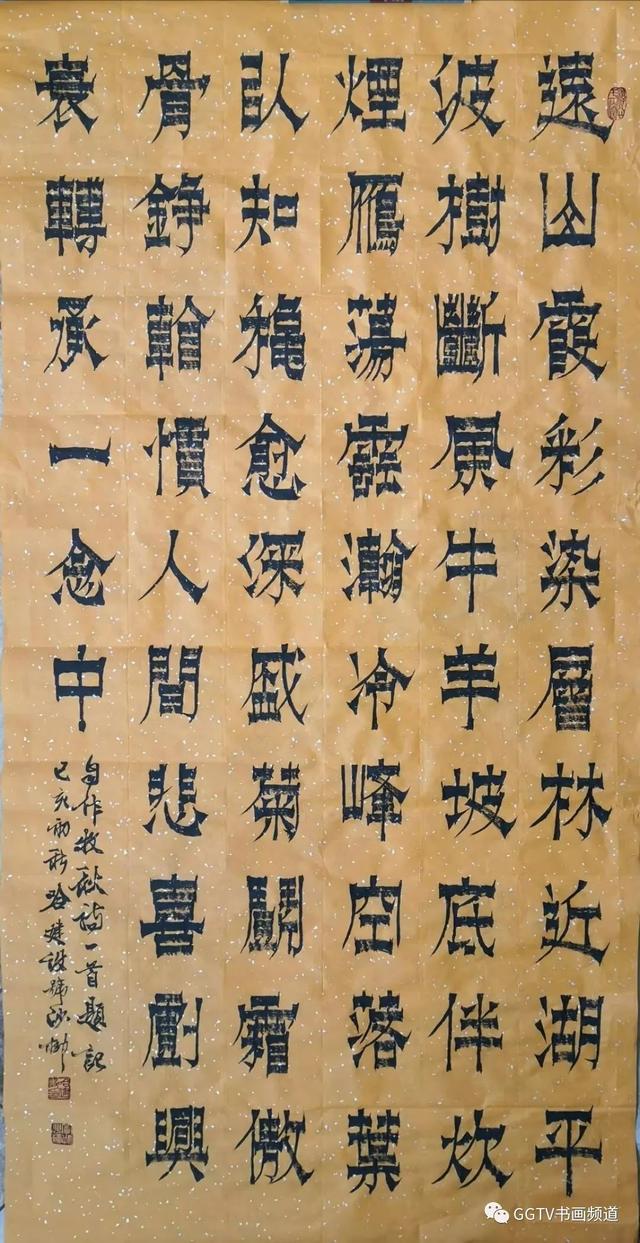 遠山霞彩染層林近湖平
波樹斷風牛羊坡底伴炊
煙雁蕩瀚冷峰空落葉
臥知穐愈深感菊鬪霜傲
骨錚慣人間悲喜劇興
衰轉承一念中
自作牧秋詩一首題記
己亥初秋建設號沙
GGTV书画频道